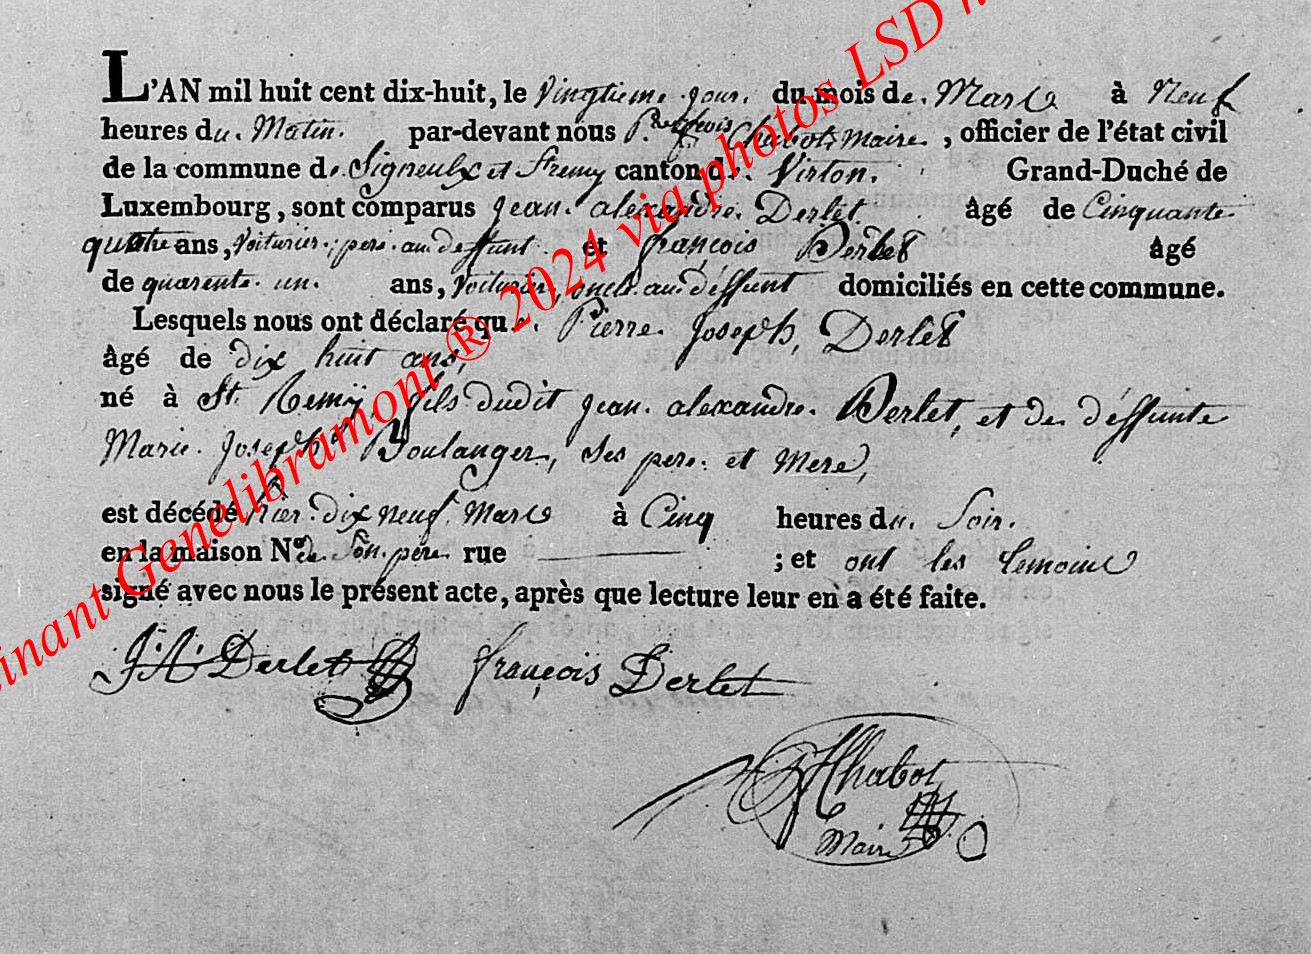 L'AN mil huit cent dix-huit, le Vingtieme jour. du mois de. Mars à Neuf
heures du. Matin. par-devant nous Chabot, Maire, officier de l'état civil
de la commune de. Signeulx et St remy canton de. Virton. Grand-Duché de
Luxembourg, sont comparus Jean. alexandre. Derlet âgé de Cinquante-
quatre ans, Voiturier, pere. au deffunt et françois Derlet âgé
de quarente. un. ans, Voiturier, oncle. au. déffunt domiciliés en cette commune.
Lesquels nous ont déclaré que. Pierre. Joseph, Derlet
âgé de dix huit ans,
né à St. Remÿ, fils dudit Jean. alexandre. Derlet, et de. déffunte
Marie. Joseph Boulanger, ses pere. et Mere,
est décédé hier. dix neuf. Mars à Cinq heures du. Soir.
en la maison No. de. Son. pere. rue ; et ont les temoins
signé avec nous le présent acte, après que lecture leur en a été faite.
J. A. Derlet françois Derlet
Chabot
Maire
inant Genelibramont ® 2024 via photos LSD